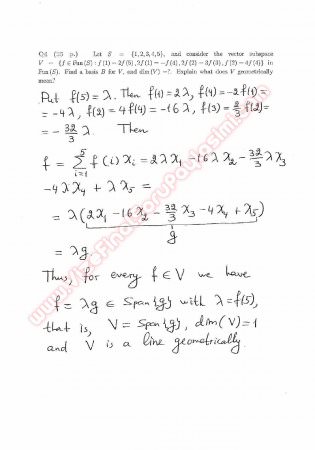 Q4 (25 p.) Let S = {1,2,3,4,5}, and consider the vector subspace
V = {f ∈ Fun(S) : f(1) = 2f(5), 2f(1) = −f(4), 2f(2) = 3f(3), f(2) = 4f(4)} in
Fun(S). Find a basis B for V, and dim(V) =?. Explain what does V geometrically
mean?
Put f(5) = λ. Then f(1) = 2λ, f(4) = -2f(1) =
= -4λ, f(2) = 4f(4) = -16λ, f(3) = 2/3 f(2) =
= - 32/3 λ. Then
f = Σ_{i=1}^{5} f(i)χ_i = 2λχ_1 - 16λχ_2 - 32/3 λχ_3
-4λχ_4 + λχ_5 =
= λ(2χ_1 - 16χ_2 - 32/3 χ_3 - 4χ_4 + χ_5)
g
= λg
Thus, for every f ∈ V we have
f = λg ∈ Span{g} with λ = f(5),
that is, V = Span{g}, dim(V) = 1
and V is a line geometrically.